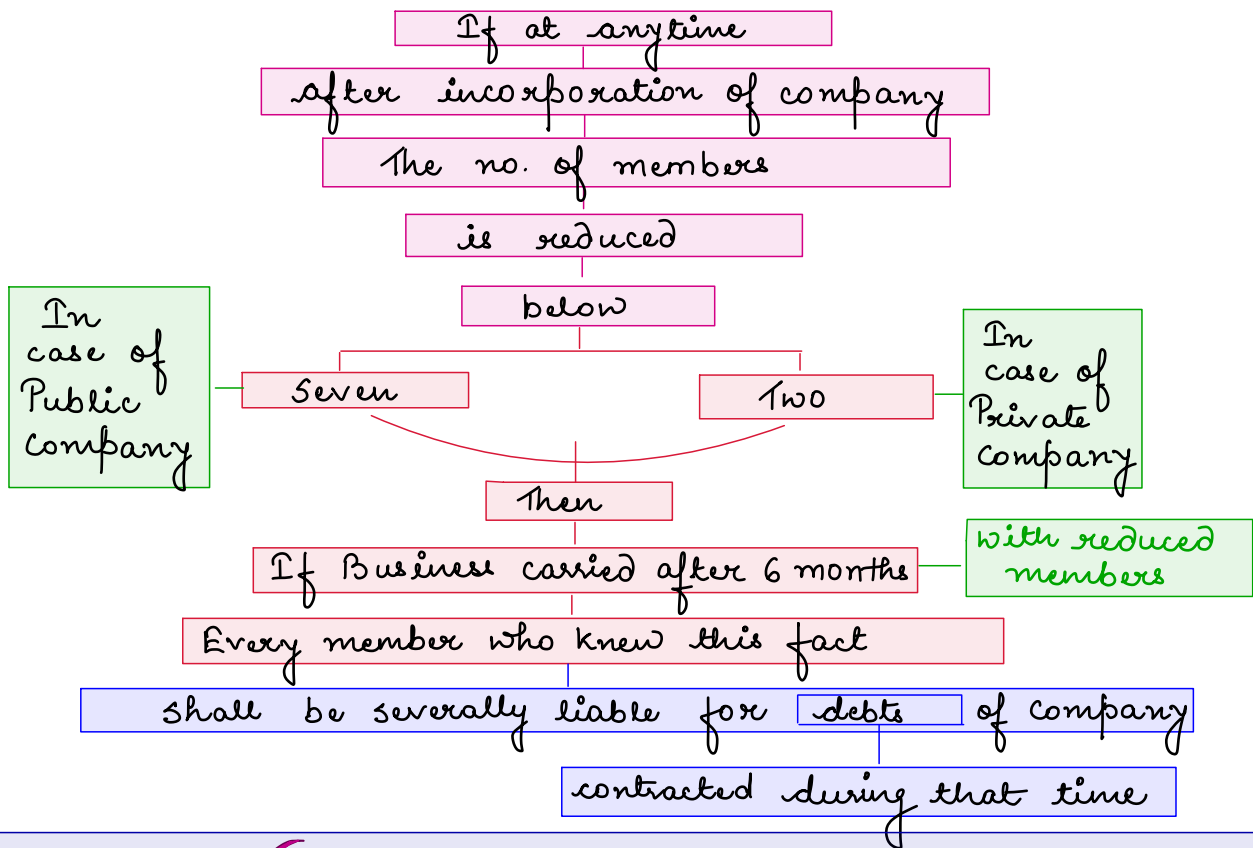 If at anytime
after incorporation of company
The no. of members
is reduced
below
In
case of
Public
company
Seven
Two
In
case of
Private
company
Then
If Business carried after 6 months
with reduced
members
Every member who knew this fact
shall be severally liable for debts of company
contracted during that time